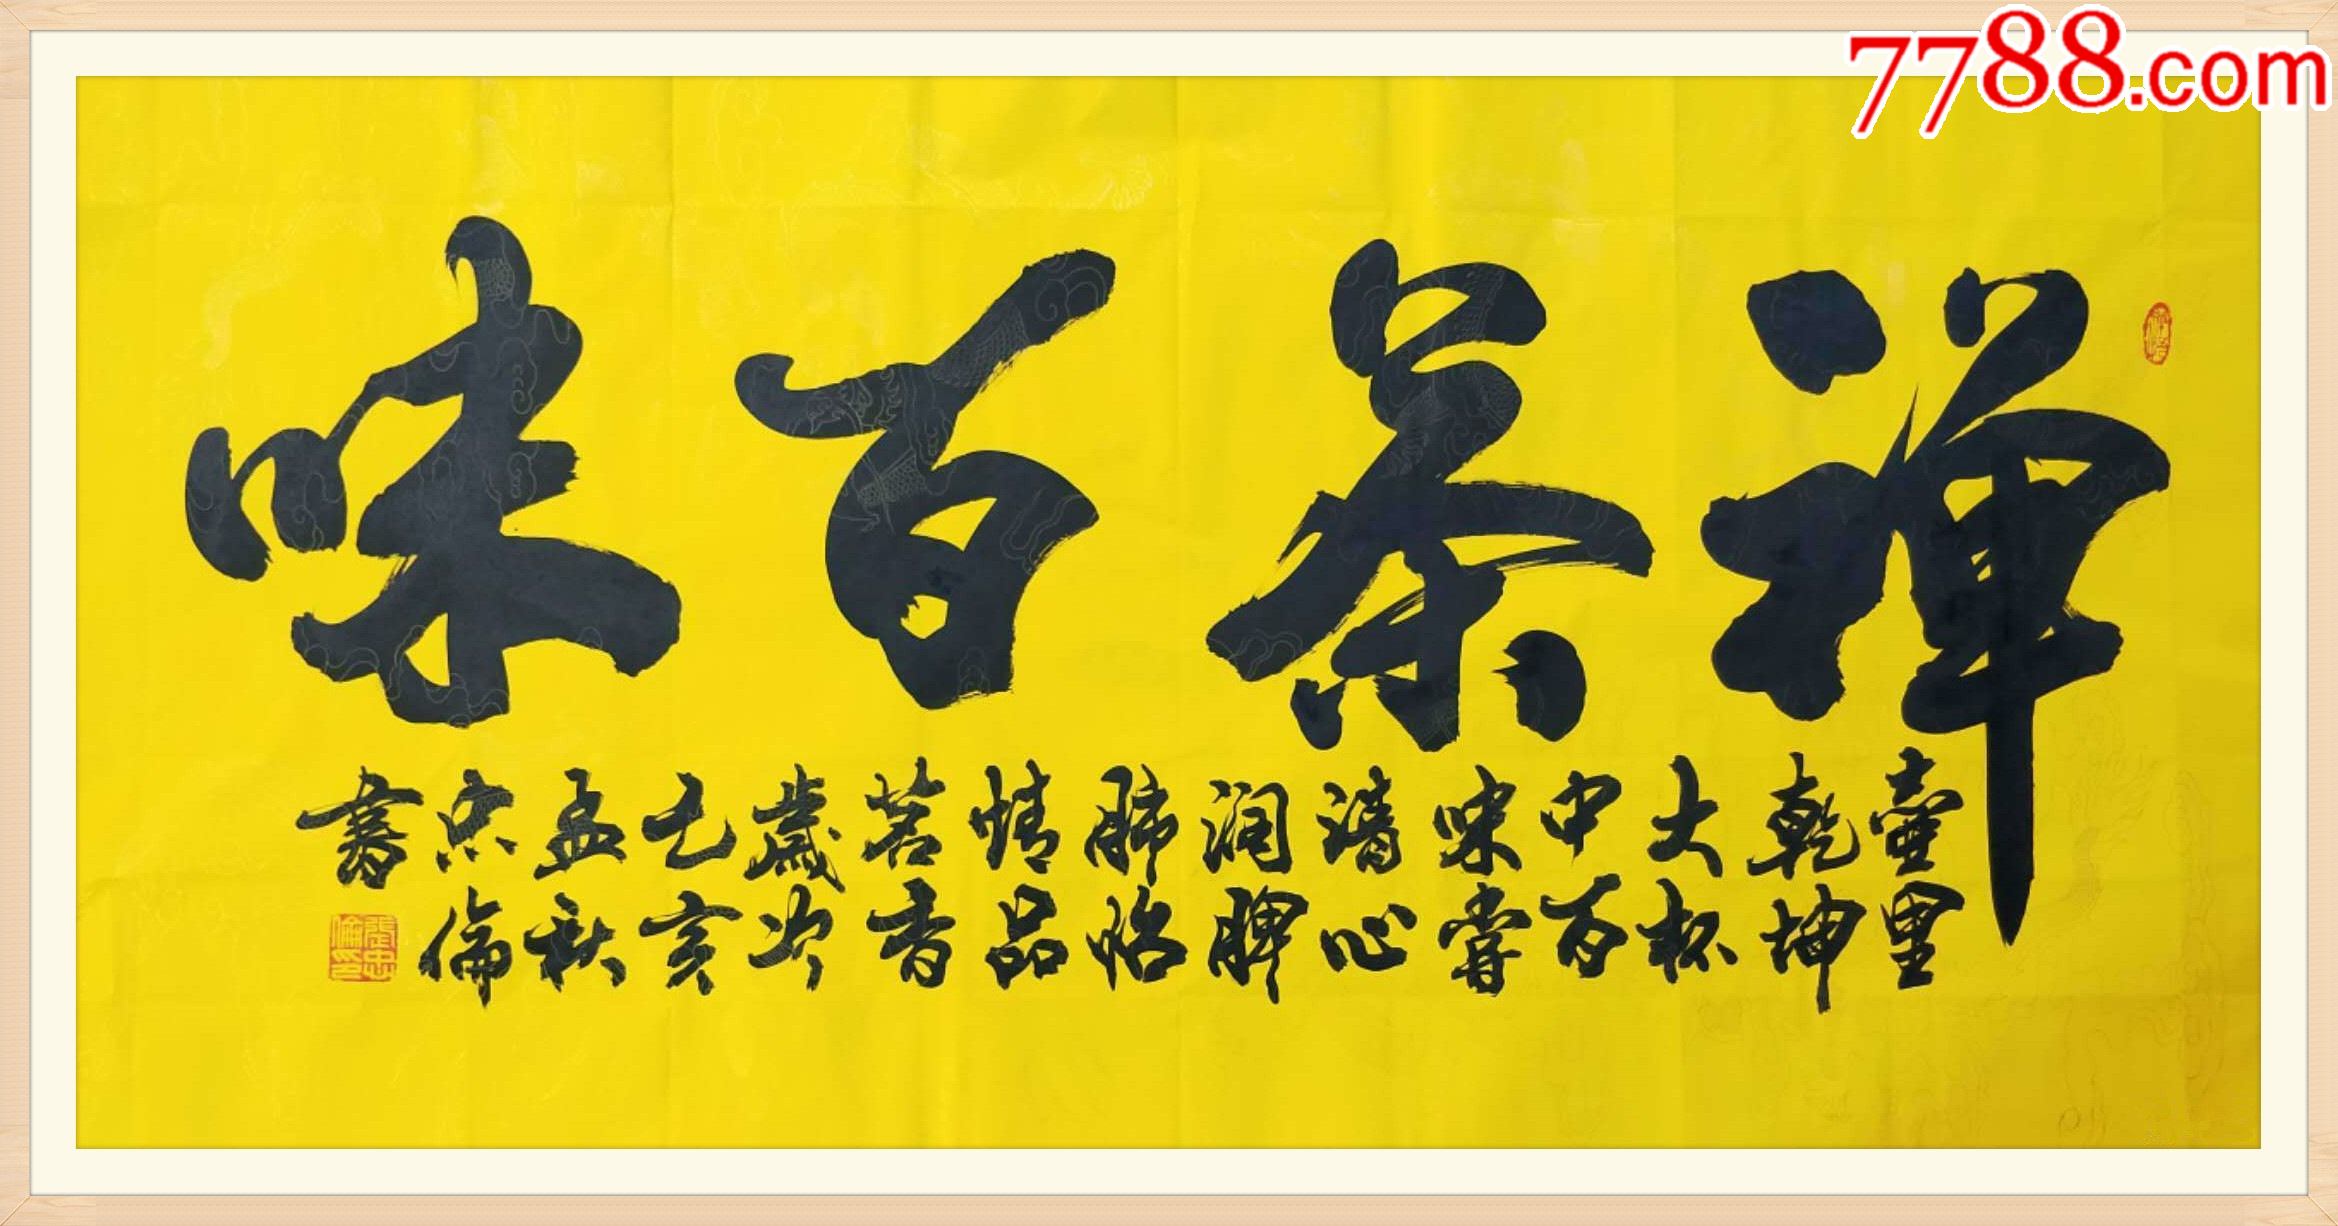 禅茶百味
壺里
乾坤
大杯
中百
味尝
清心
润脾
肺怡
情品
茗香
歲次
己亥
孟秋
忠倫
書
7788.com